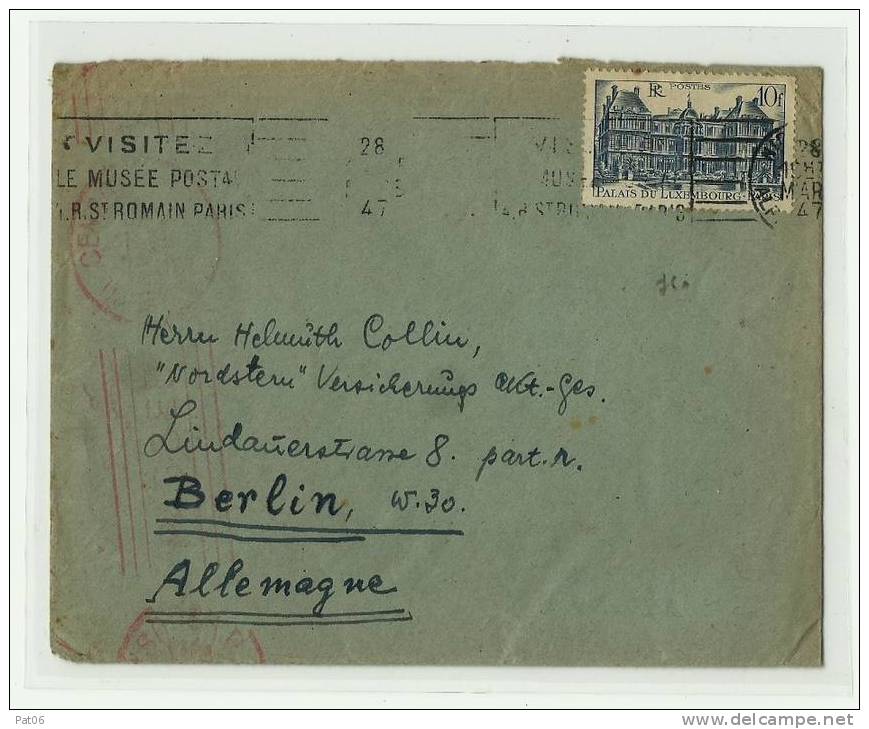 VISITEZ
LE MUSÉE POSTAL
4.R.ST ROMAIN PARIS
28
47
RF POSTES 10f
PALAIS DU LUXEMBOURG-PARIS
28
MAR
47
Herrn Helmuth Collin,
"Nordstern" Versicherungs Akt.-Ges.
Lindauerstrasse 8. part. r.
Berlin, W.30.
Allemagne
Pat06
www.delcampe.net